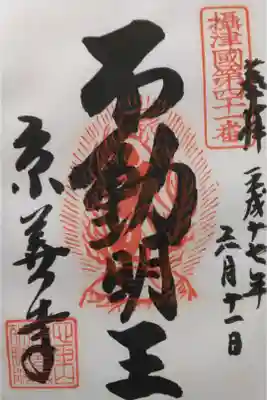 攝津國第四十一番
奉拝
平成十七年
月十一日
不動明王
京善寺